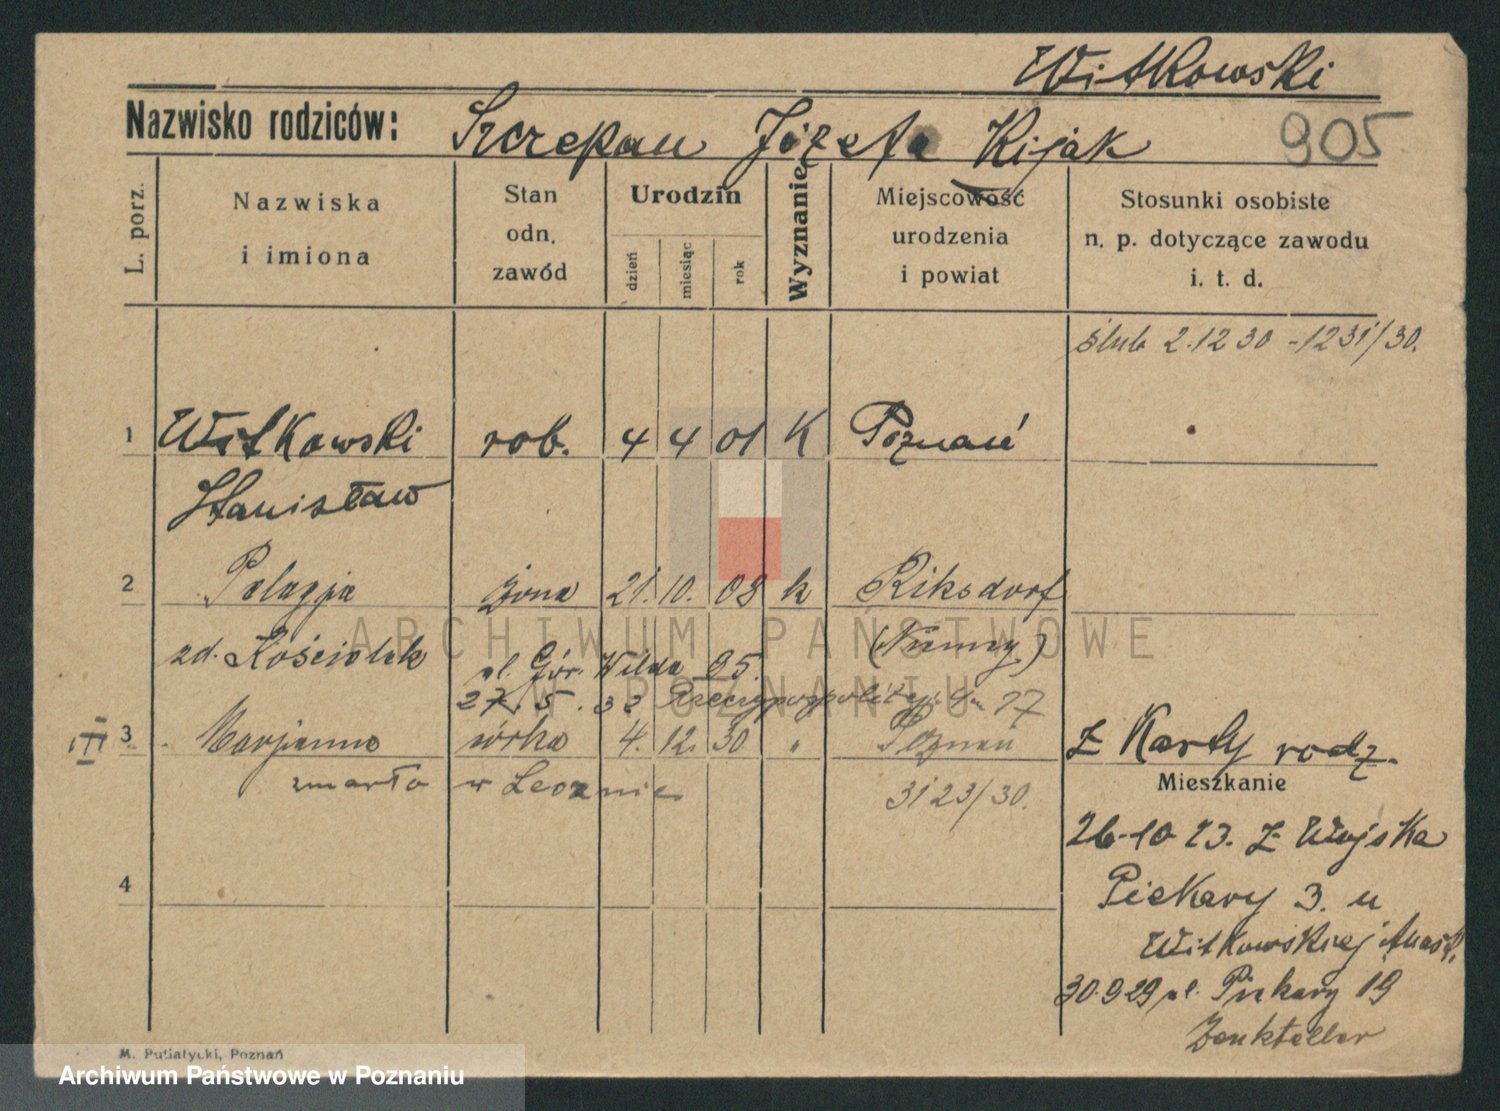 Witkowski
Nazwisko rodziców: Szczepan Józefa Kijak
905
L. porz.
Nazwiska i imiona
Stan odn. zawód
Urodzin
dzień
miesiąc
rok
Wyznanie
Miejscowość urodzenia i powiat
Stosunki osobiste n. p. dotyczące zawodu i. t. d.
ślub 2.12 30 - 1231/30.
1 Witkowski rob. 4 4 01 K Poznań
Stanisław
2 Pelagja żona 21. 10. 08 k Riksdorf
zd. Kościolek (Niemcy)
pl. Gór. Wilda 95.
27. 5. 32 Rzeczypospolitej 27
III 3 Marjanna córka 4. 12. 30 " Poznań
zmarła w Lecznicy 3123/30.
Z Karty rodz.
Mieszkanie
26-10 23. Z Wojska
Piekary 3. u
Witkowskiej Anast.
30.9 29 pl. Piekary 19
Zenkteller
4
M. Putiatycki, Poznań
ARCHIWUM PAŃSTWOWE
W POZNANIU
Archiwum Państwowe w Poznaniu